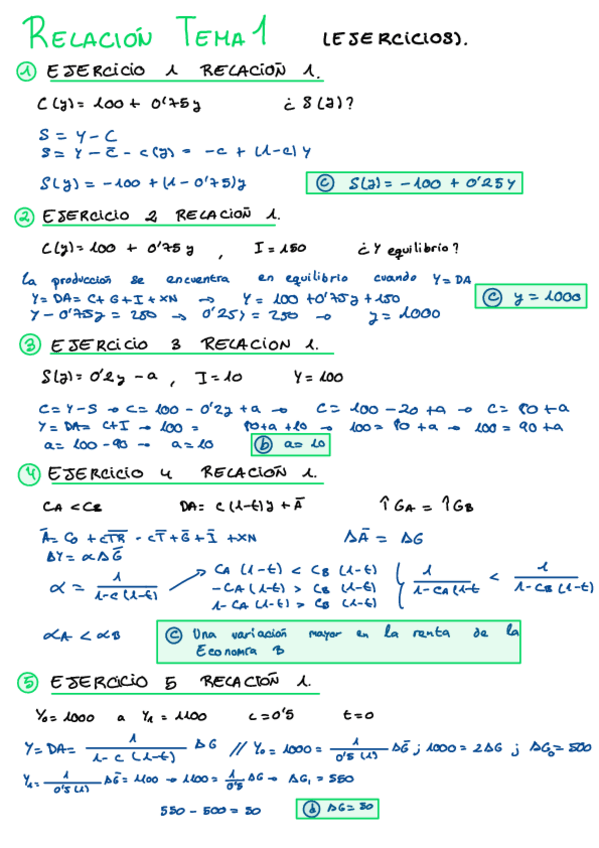 RELACIÓN TEMA 1 (EJERCICIOS).
① EJERCICIO 1 RELACIÓN 1.
C(y) = 100 + 0'75y ¿S(y)?
S = Y - C
S = Y - C̄ - c(y) = -c + (1-c)Y
S(y) = -100 + (1-0'75)y
ⓒ S(y) = -100 + 0'25Y
② EJERCICIO 2 RELACIÓN 1.
C(y) = 100 + 0'75y , I = 150 ¿Y equilibrio?
La producción se encuentra en equilibrio cuando Y = DA
Y = DA = C + G + I + XN → Y = 100 + 0'75y + 150
Y - 0'75y = 250 → 0'25Y = 250 → y = 1000
ⓒ y = 1000
③ EJERCICIO 3 RELACION 1.
S(y) = 0'2y - a , I = 10 Y = 100
C = Y - S → C = 100 - 0'2y + a → C = 100 - 20 + a → C = 80 + a
Y = DA = C + I → 100 = 80 + a + 10 → 100 = 80 + a → 100 = 90 + a
a = 100 - 90 → a = 10 ⓑ a = 10
④ EJERCICIO 4 RELACIÓN 1.
CA < CB DA = C(1-t)y + Ā ↑GA = ↑GB
Ā = C0 + cT̄R̄ - cT̄ + Ḡ + Ī + XN ΔĀ = ΔG
ΔY = αΔḠ
α = 1/(1-c(1-t)) → CA(1-t) < CB(1-t)
-CA(1-t) > CB(1-t)
1-CA(1-t) > CB(1-t)
1/(1-CA(1-t) < 1/(1-CB(1-t)
αA < αB
ⓒ Una variación mayor en la renta de la
Economía B
⑤ EJERCICIO 5 RELACIÓN 1.
Y0 = 1000 a Y1 = 1100 c = 0'5 t = 0
Y = DA = 1/(1-c(1-t)) ΔG // Y0 = 1000 = 1/(0'5(1)) ΔḠ ; 1000 = 2ΔG ; ΔG0 = 500
Y1 = 1/(0'5(1)) ΔḠ = 1100 → 1100 = 1/0'5 ΔG → ΔG1 = 550
550 - 500 = 50 ⓓ ΔG = 50